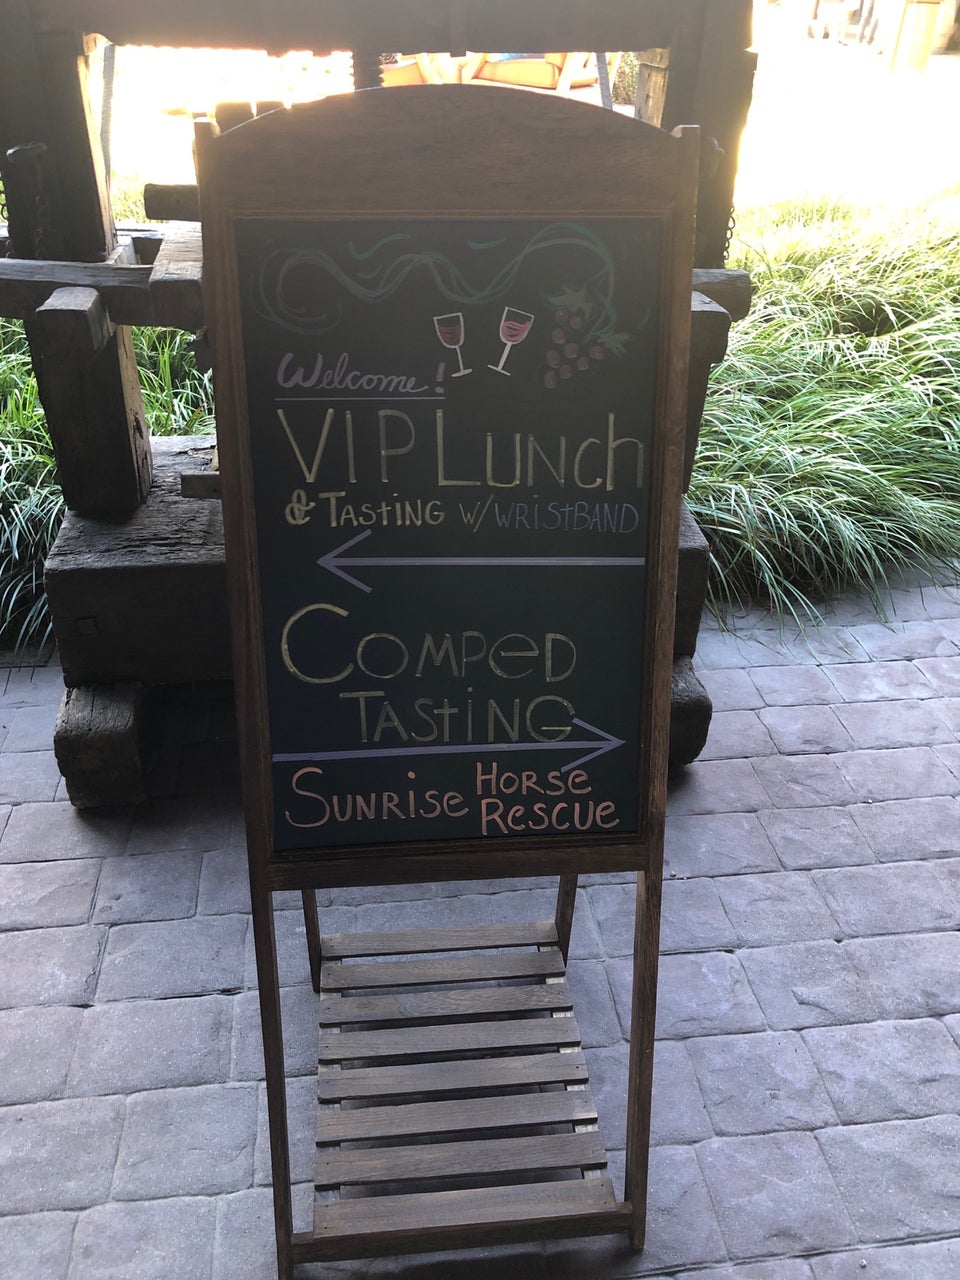 Welcome!
VIP Lunch
& Tasting w/ Wristband
Comped
Tasting
Sunrise Horse
Rescue